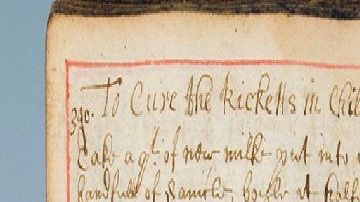 390. To Cure the Ricketts in Chil
take a qt of new milke put into
handfull of Sanicle, boyle it half